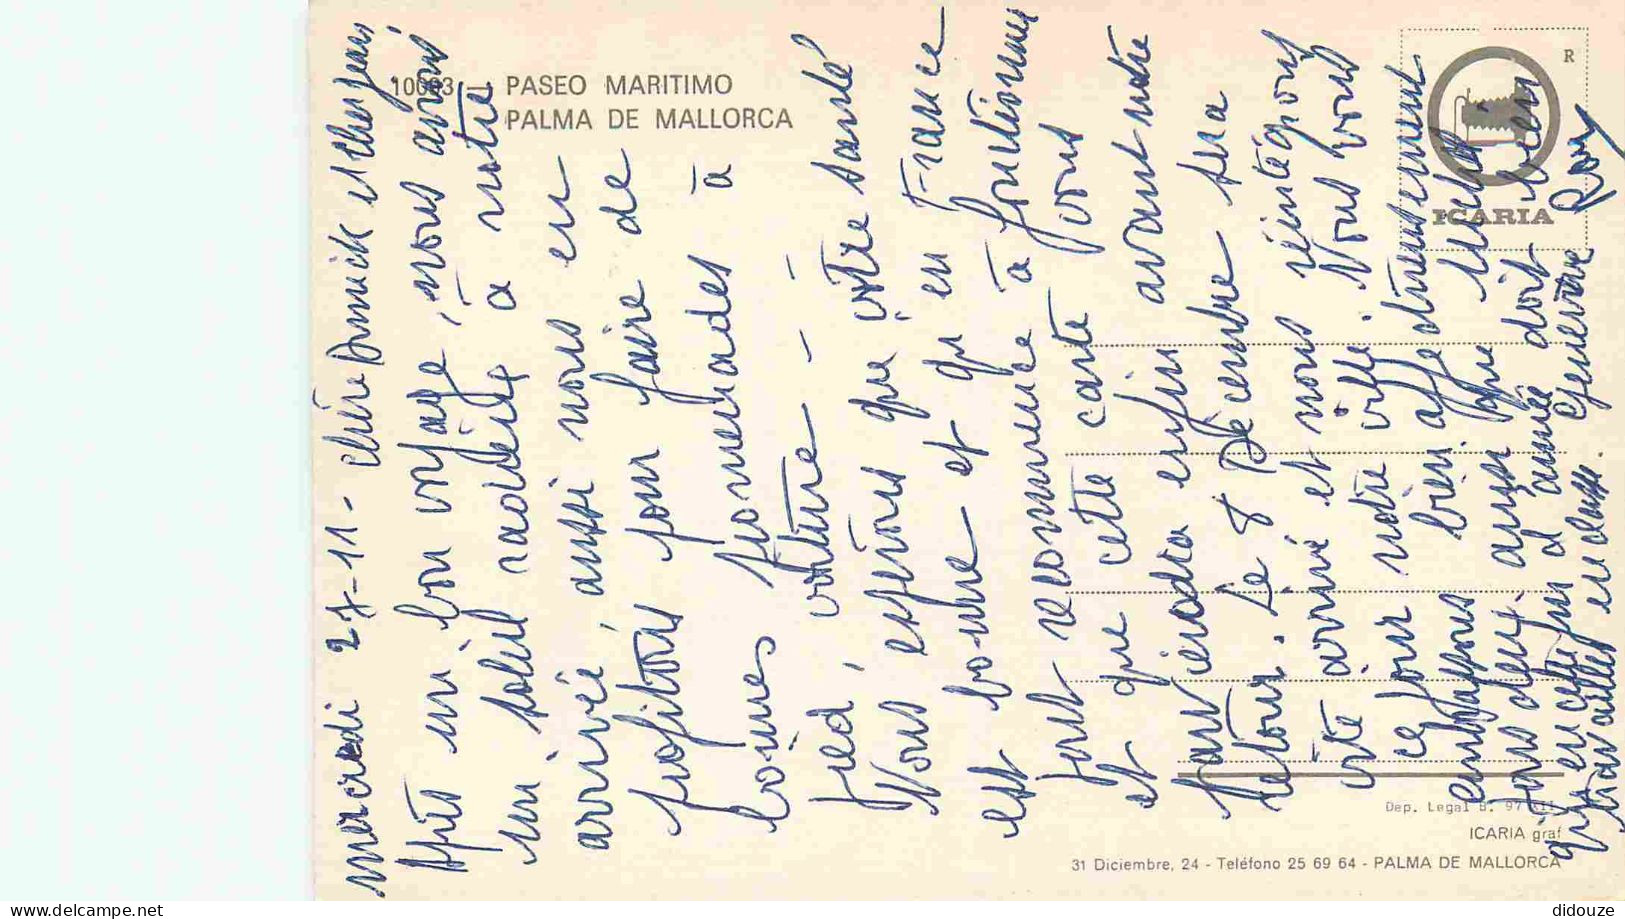 10003 - PASEO MARITIMO
PALMA DE MALLORCA
R
ICARIA
mercredi 27-11 - chère Annick et cher Jean
Après un bon voyage, nous avons
un soleil radieux à notre
arrivée, aussi nous en
profitons pour faire de
bonnes promenades à
pied, voiture - - -
Nous espérons que votre santé
est bonne et qu'en France
tout recommence à fonctionner
et que cette carte vous
parviendra enfin avant notre
retour. Le 8 Décembre sera
vite arrivé et nous réintégrons
ce jour notre ville. Nous vous
embrassons bien affectueusement
tous deux, ainsi que
qui en cette fin d'année doit bien
travailler en classe. Geneviève
Roy
Dep. Legal B. 97 XII
ICARIA graf
31 Diciembre, 24 - Teléfono 25 69 64 - PALMA DE MALLORCA
delcampe.net
didouze